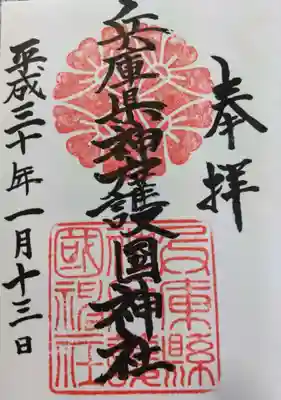 奉拝
兵庫県神戸護國神社
平成三十年一月十三日
兵庫縣
國神社